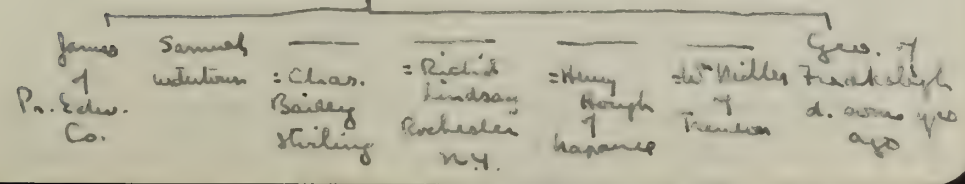 James
of
Pr. Edw.
Co.
Samuel
= Chas.
Bailey
Stirling
= Rich'd
Lindsay
Rochester
N.Y.
= Henry
Hough
of
Napanee
= Wm Miller
of
Trenton
Geo. of
d. some yrs
ago